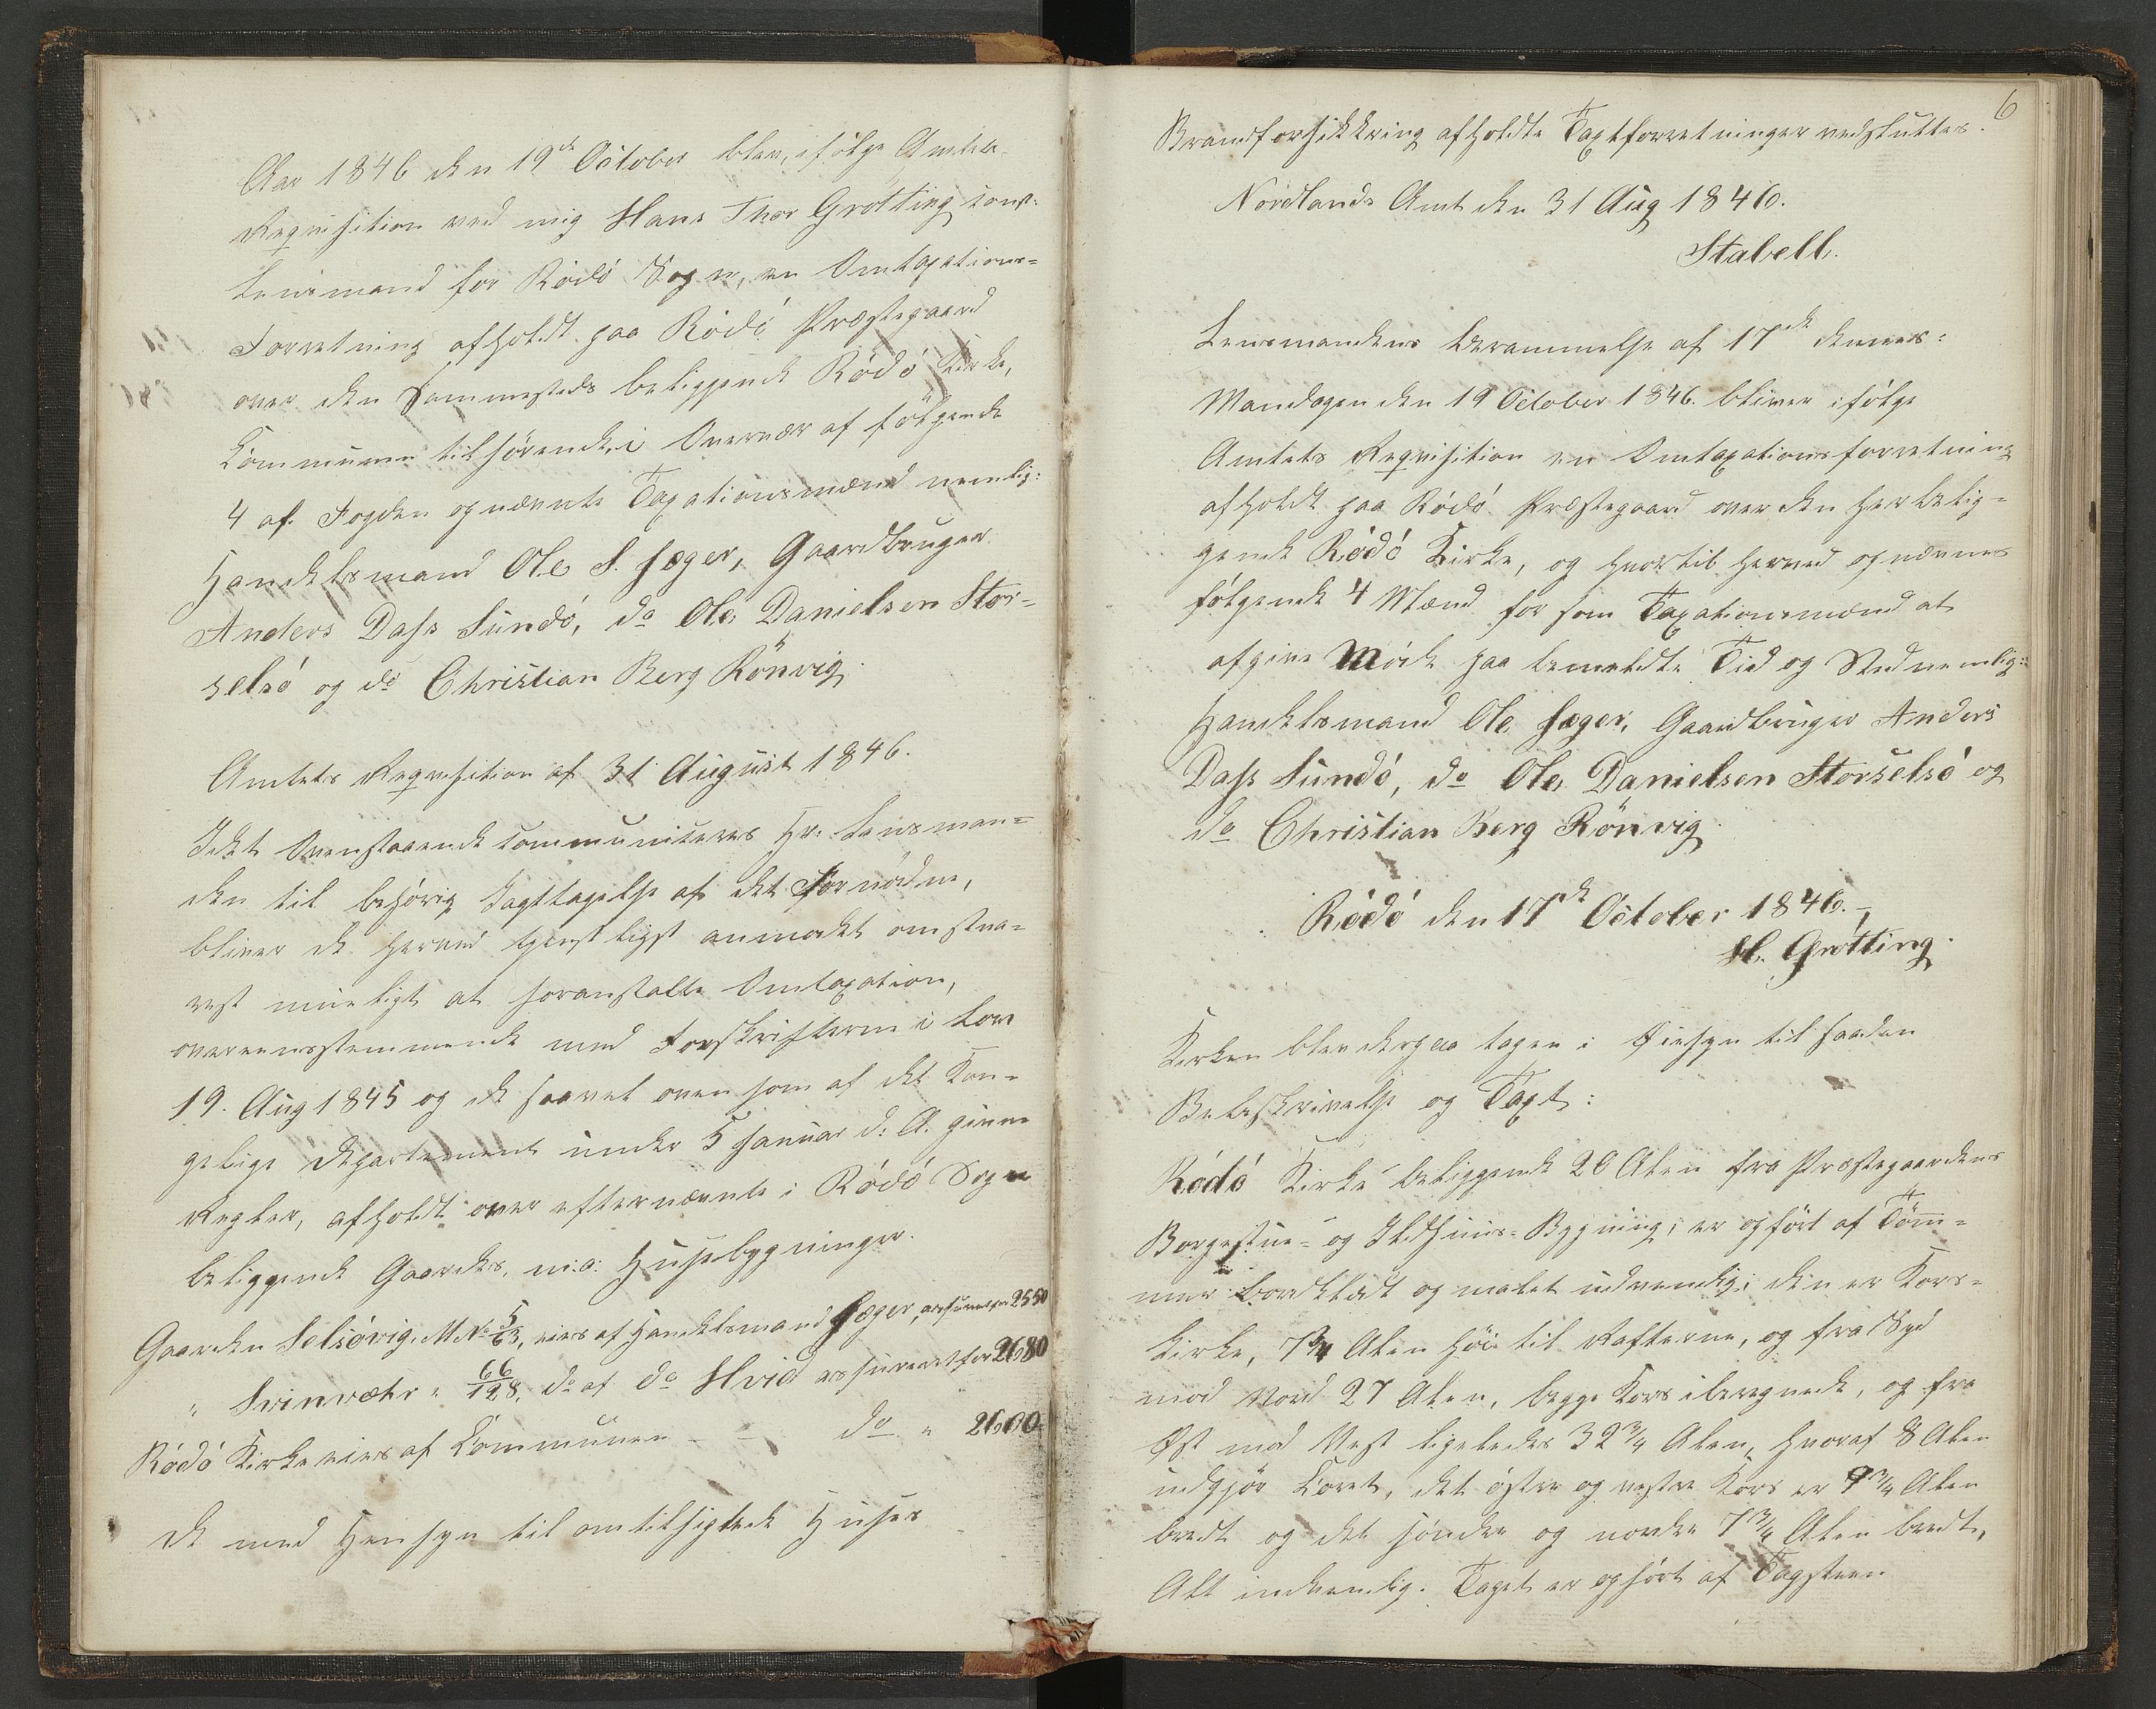 Aar 1846 den 19de October blev, ifölge Amtets
Reqvisition ved mig Hans Thor Grötting const:
Lensmand for Rödö Sogn, en Omtaxations-
Forretning afholdt paa Rödö Præstegaard
over den Sammesteds beliggende Rödö Kirke,
Communen tilhörende, i Overvær af fölgende
4 af Fogden opnævnte Taxationsmænd nemlig:
Handelsmand Ole S. Jæger, Gaardbruger
Anders Dass Sundö, do Ole Danielsen Stor-
selsö og do Christian Berg Rönvig.
Amtets Reqvisition af 31 August 1846.
Idet Ovenstaaende communiceres Hr. Lensman-
den til behörig Iagttagelse af det Fornödne,
bliver De herved tjenstligst anmodet om sna-
rest mueligt at foranstalte Omtaxation,
overeensstemmende med Forskrifterne i Lov
19. Aug 1845 og de saavel oven som af det Kon-
gelige Departement under 5 Januar d. A. givne
Regler, afholdt over efternævnte i Rödö Sogn
beliggende Gaardes, m: a: Husebygninger.
Gaarden Selsövig. M.No 5/63, eies af Handelsmand Jæger, assureret 2550
" Svinvær " 66/128, do af do Hvid assureret for 2680
Rödö Kirke eies af Communen - - do " 2600.
De med Hensyn til omtilsigtede Huses
6
Brandforsikkring afholdte Taxtforretninger vedsluttes.
Nordlands Amt den 31 Aug 1846.
Stabell.
Lensmandens Berammelse af 17de dennes:
Mandagen den 19 October 1846. bliver ifölge
Amtets Reqvisition en Omtaxationsforretning
afholdt paa Rödö Præstegaard over den her belig-
gende Rödö Kirke, og hvortil herved opnævnes
fölgende 4 Mænd for som Taxationsmænd at
afgive Möde paa bemeldte Tid og Sted nemlig:
Handelsmand Ole Jæger, Gaardbruger Anders
Dass Sundö, do Ole Danielsen Storselsö og
do Christian Berg Rönvig.
Rödö den 17de October 1846.
H. Grötting.
Kirken blev derpaa tagen i Øiesyn til saadan
Beskrivelse og Taxt:
Rödö Kirke beliggende 20 Alen fra Præstegaardens
Borgestue- og Ildhuus-Bygning; er opfört af Töm-
mer bordklædt og malet udvendig; den er Kors-
kirke, 7 3/4 Alen höi til Rafterne, og fra Syd
mod Nord 27 Alen, begge Kors iberegnede, og fra
Øst mod Vest ligeledes 32 3/4 Alen, hvoraf 8 Alen
udgjör Coret, det östre og vestre Kors er 9 3/4 Alen
bredt og det söndre og nordre 7 3/4 Alen bredt,
Alt indvendig. Taget er opfört af Tagsteen